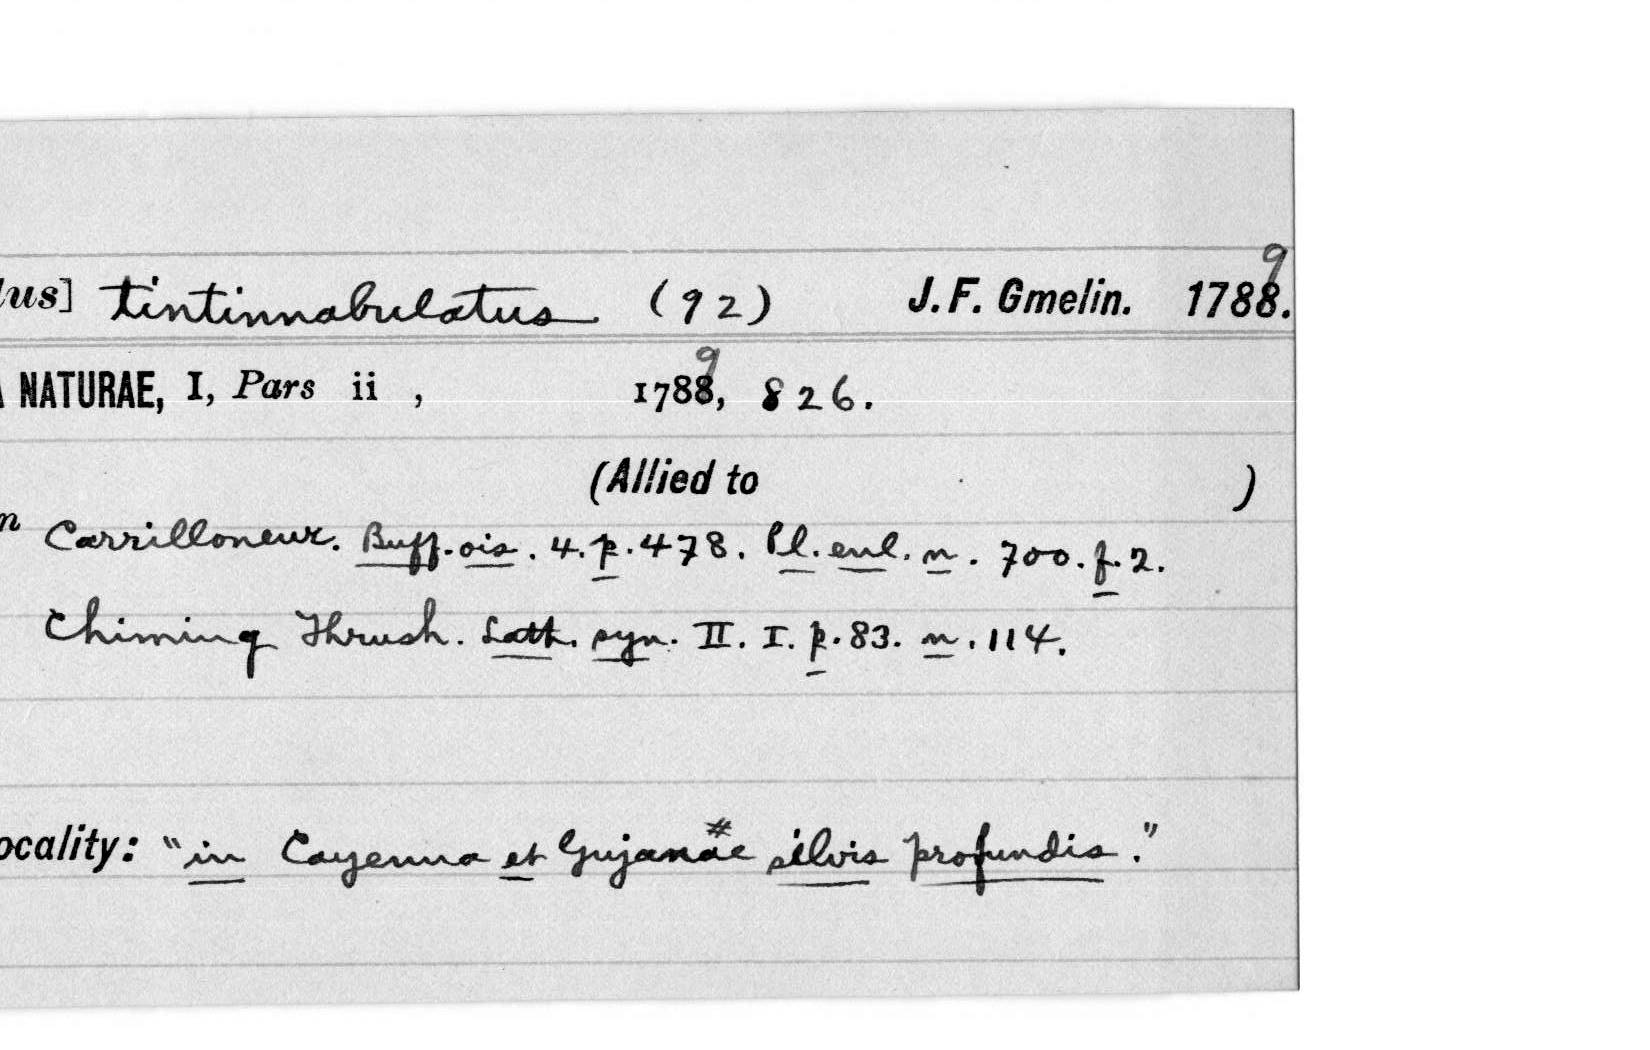 lus] tintinnabulatus (92) J. F. Gmelin. 1788. 9
NATURAE, I, Pars ii , 1788, 9 826.
(Allied to )
n Carrilloneur. Buff. ois. 4. p. 478. Pl. enl. n. 700. f. 2.
Chiming Thrush. Lath. syn. II. I. p. 83. n. 114.
ocality: "in Cayenna et Gujanae # silvis profundis."